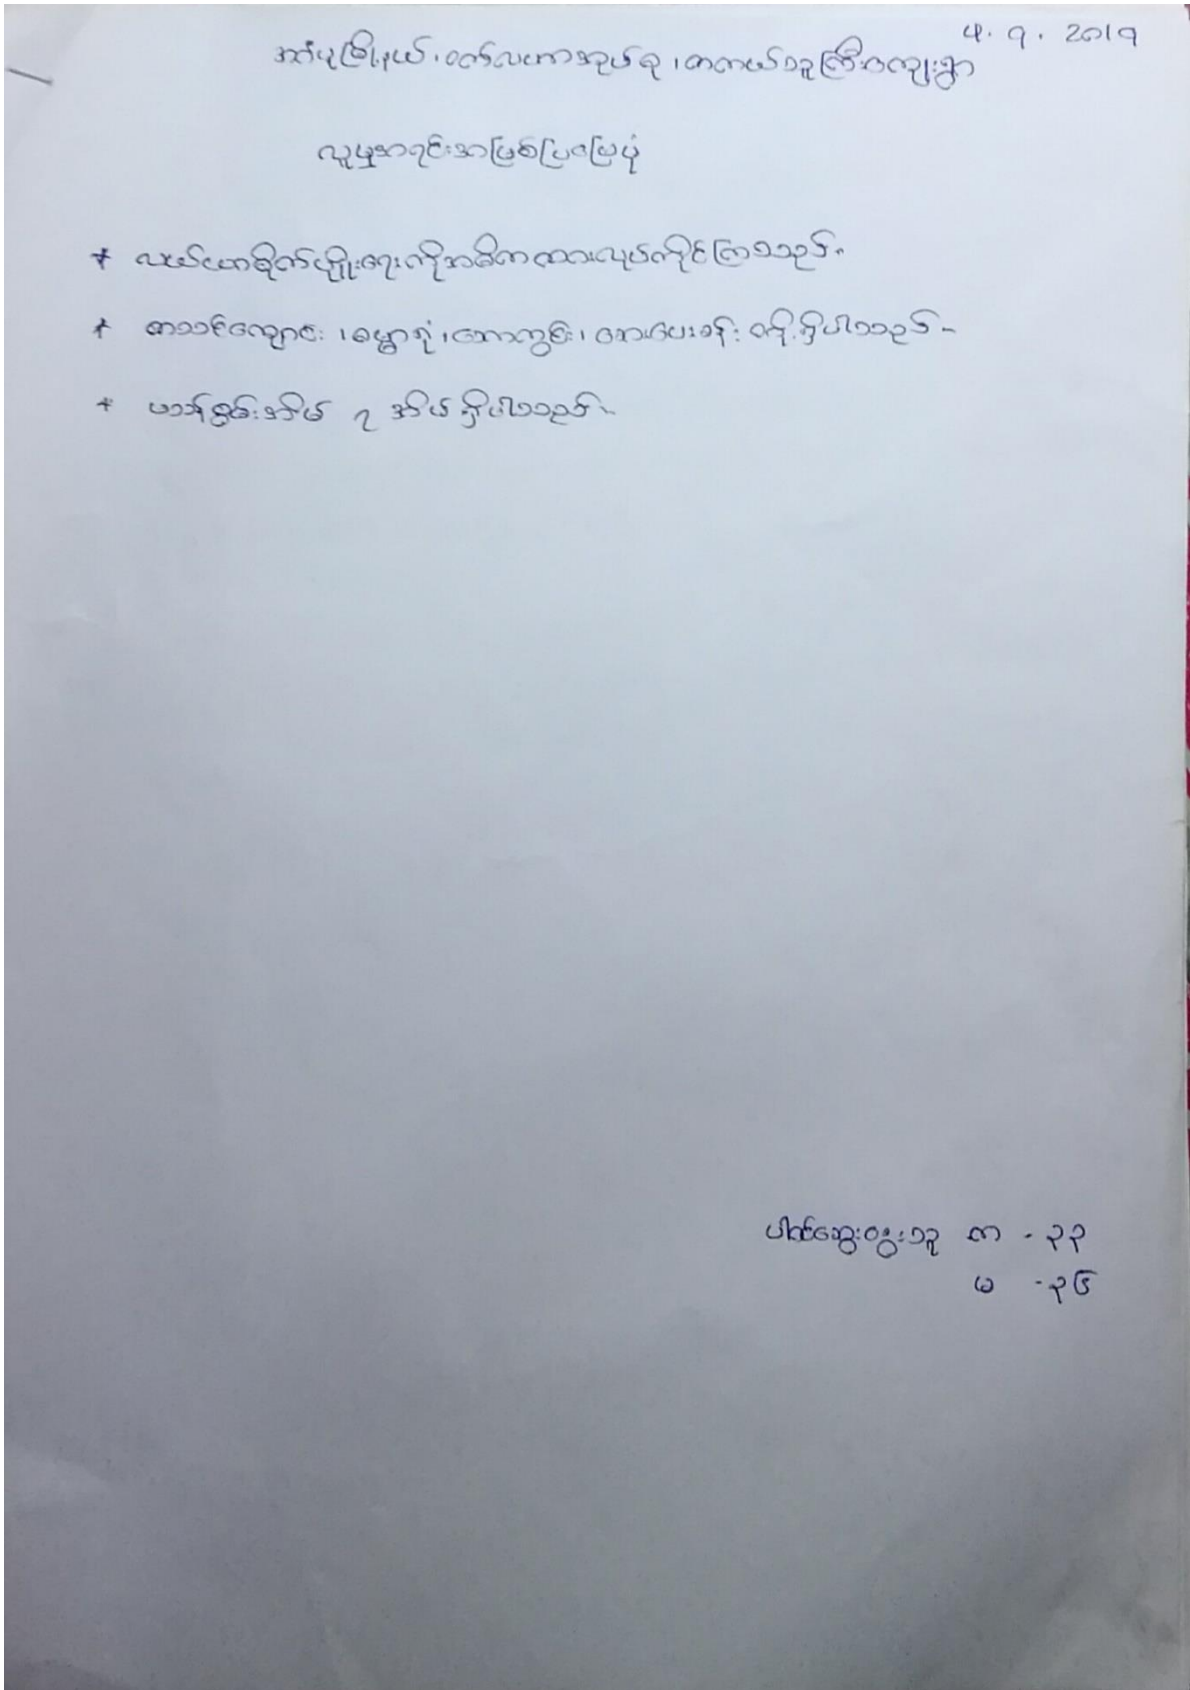 4. 7. 2019
အင်္ဂပူမြို့နယ်၊ ဝက်လယာအုပ်စု၊ တကယ်သူကြီးကျေးရွာ
လူမှုအရင်းအမြစ်ပြမြေပုံ
* လယ်ယာစိုက်ပျိုးရေးကိုအဓိကထားလုပ်ကိုင်ကြသည်။
* စာသင်ကျောင်း၊ ဓမ္မာရုံ၊ ဘောကွင်း၊ ဆေးပေးခန်း တို့ရှိပါသည်။
* မသန်စွမ်းအိမ် ၃ အိမ်ရှိပါသည်။
ပါဝင်ဆွေးနွေးသူ ကာ - ၃၃
မ - ၃၆